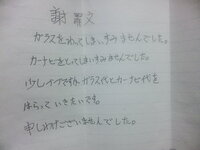 謝罪文
ガラスをわってしまい、すみませんでした。
カーナビをとってしまいすみませんでした。
少しずつですが、ガラス代とカーナビ代を
はらって いきたいです。
申しわけございませんでした。